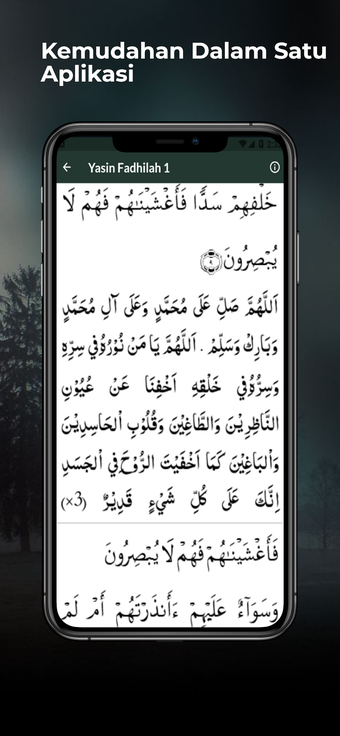 Kemudahan Dalam Satu
Aplikasi
Yasin Fadhilah 1
خَلْفِهِمْ سَدًّا فَأَغْشَيْنَـٰهُمْ فَهُمْ لَا
يُبْصِرُونَ ﴿٩﴾
اَللّٰهُمَّ صَلِّ عَلَى مُحَمَّدٍ وَعَلَى آلِ مُحَمَّدٍ
وَبَارِكْ وَسَلِّمْ . اَللّٰهُمَّ يَا مَنْ نُوْرُهُ فِي سِرِّهِ
وَسِرُّهُ فِي خَلْقِهِ اَخْفِنَا عَنْ عُيُوْنِ
النَّاظِرِيْنَ وَالطَّاغِيْنَ وَقُلُوْبِ الْحَاسِدِيْنَ
وَالْبَاغِيْنَ كَمَا اَخْفَيْتَ الرُّوْحَ فِي الْجَسَدِ
اِنَّكَ عَلَى كُلِّ شَيْءٍ قَدِيْرٌ (×3)
فَأَغْشَيْنَـٰهُمْ فَهُمْ لَا يُبْصِرُونَ
وَسَوَآءٌ عَلَيْهِمْ ءَأَنذَرْتَهُمْ أَمْ لَمْ